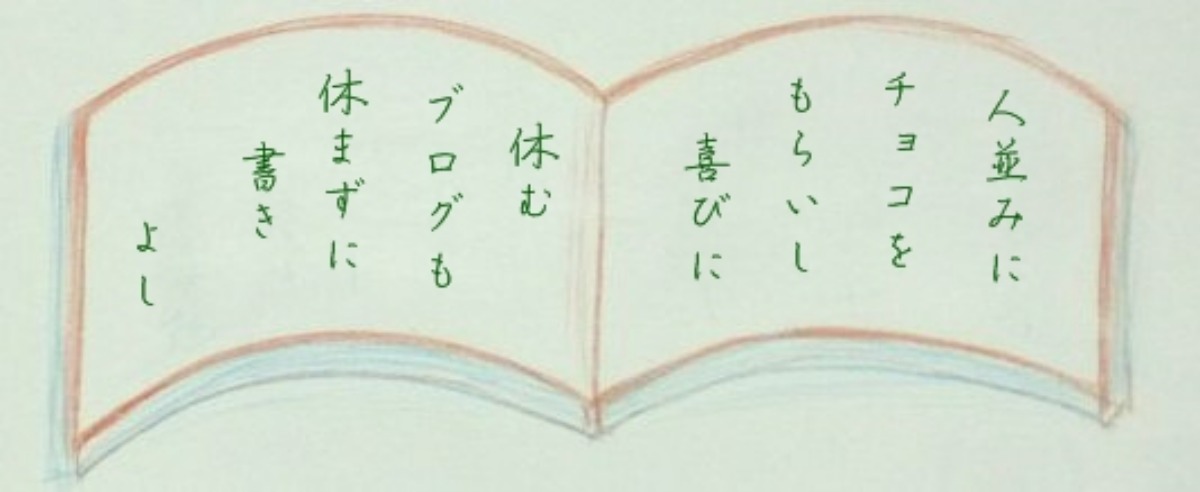 人並みに
チョコを
もらいし
喜びに
休む
ブログも
休まずに
書き
よし